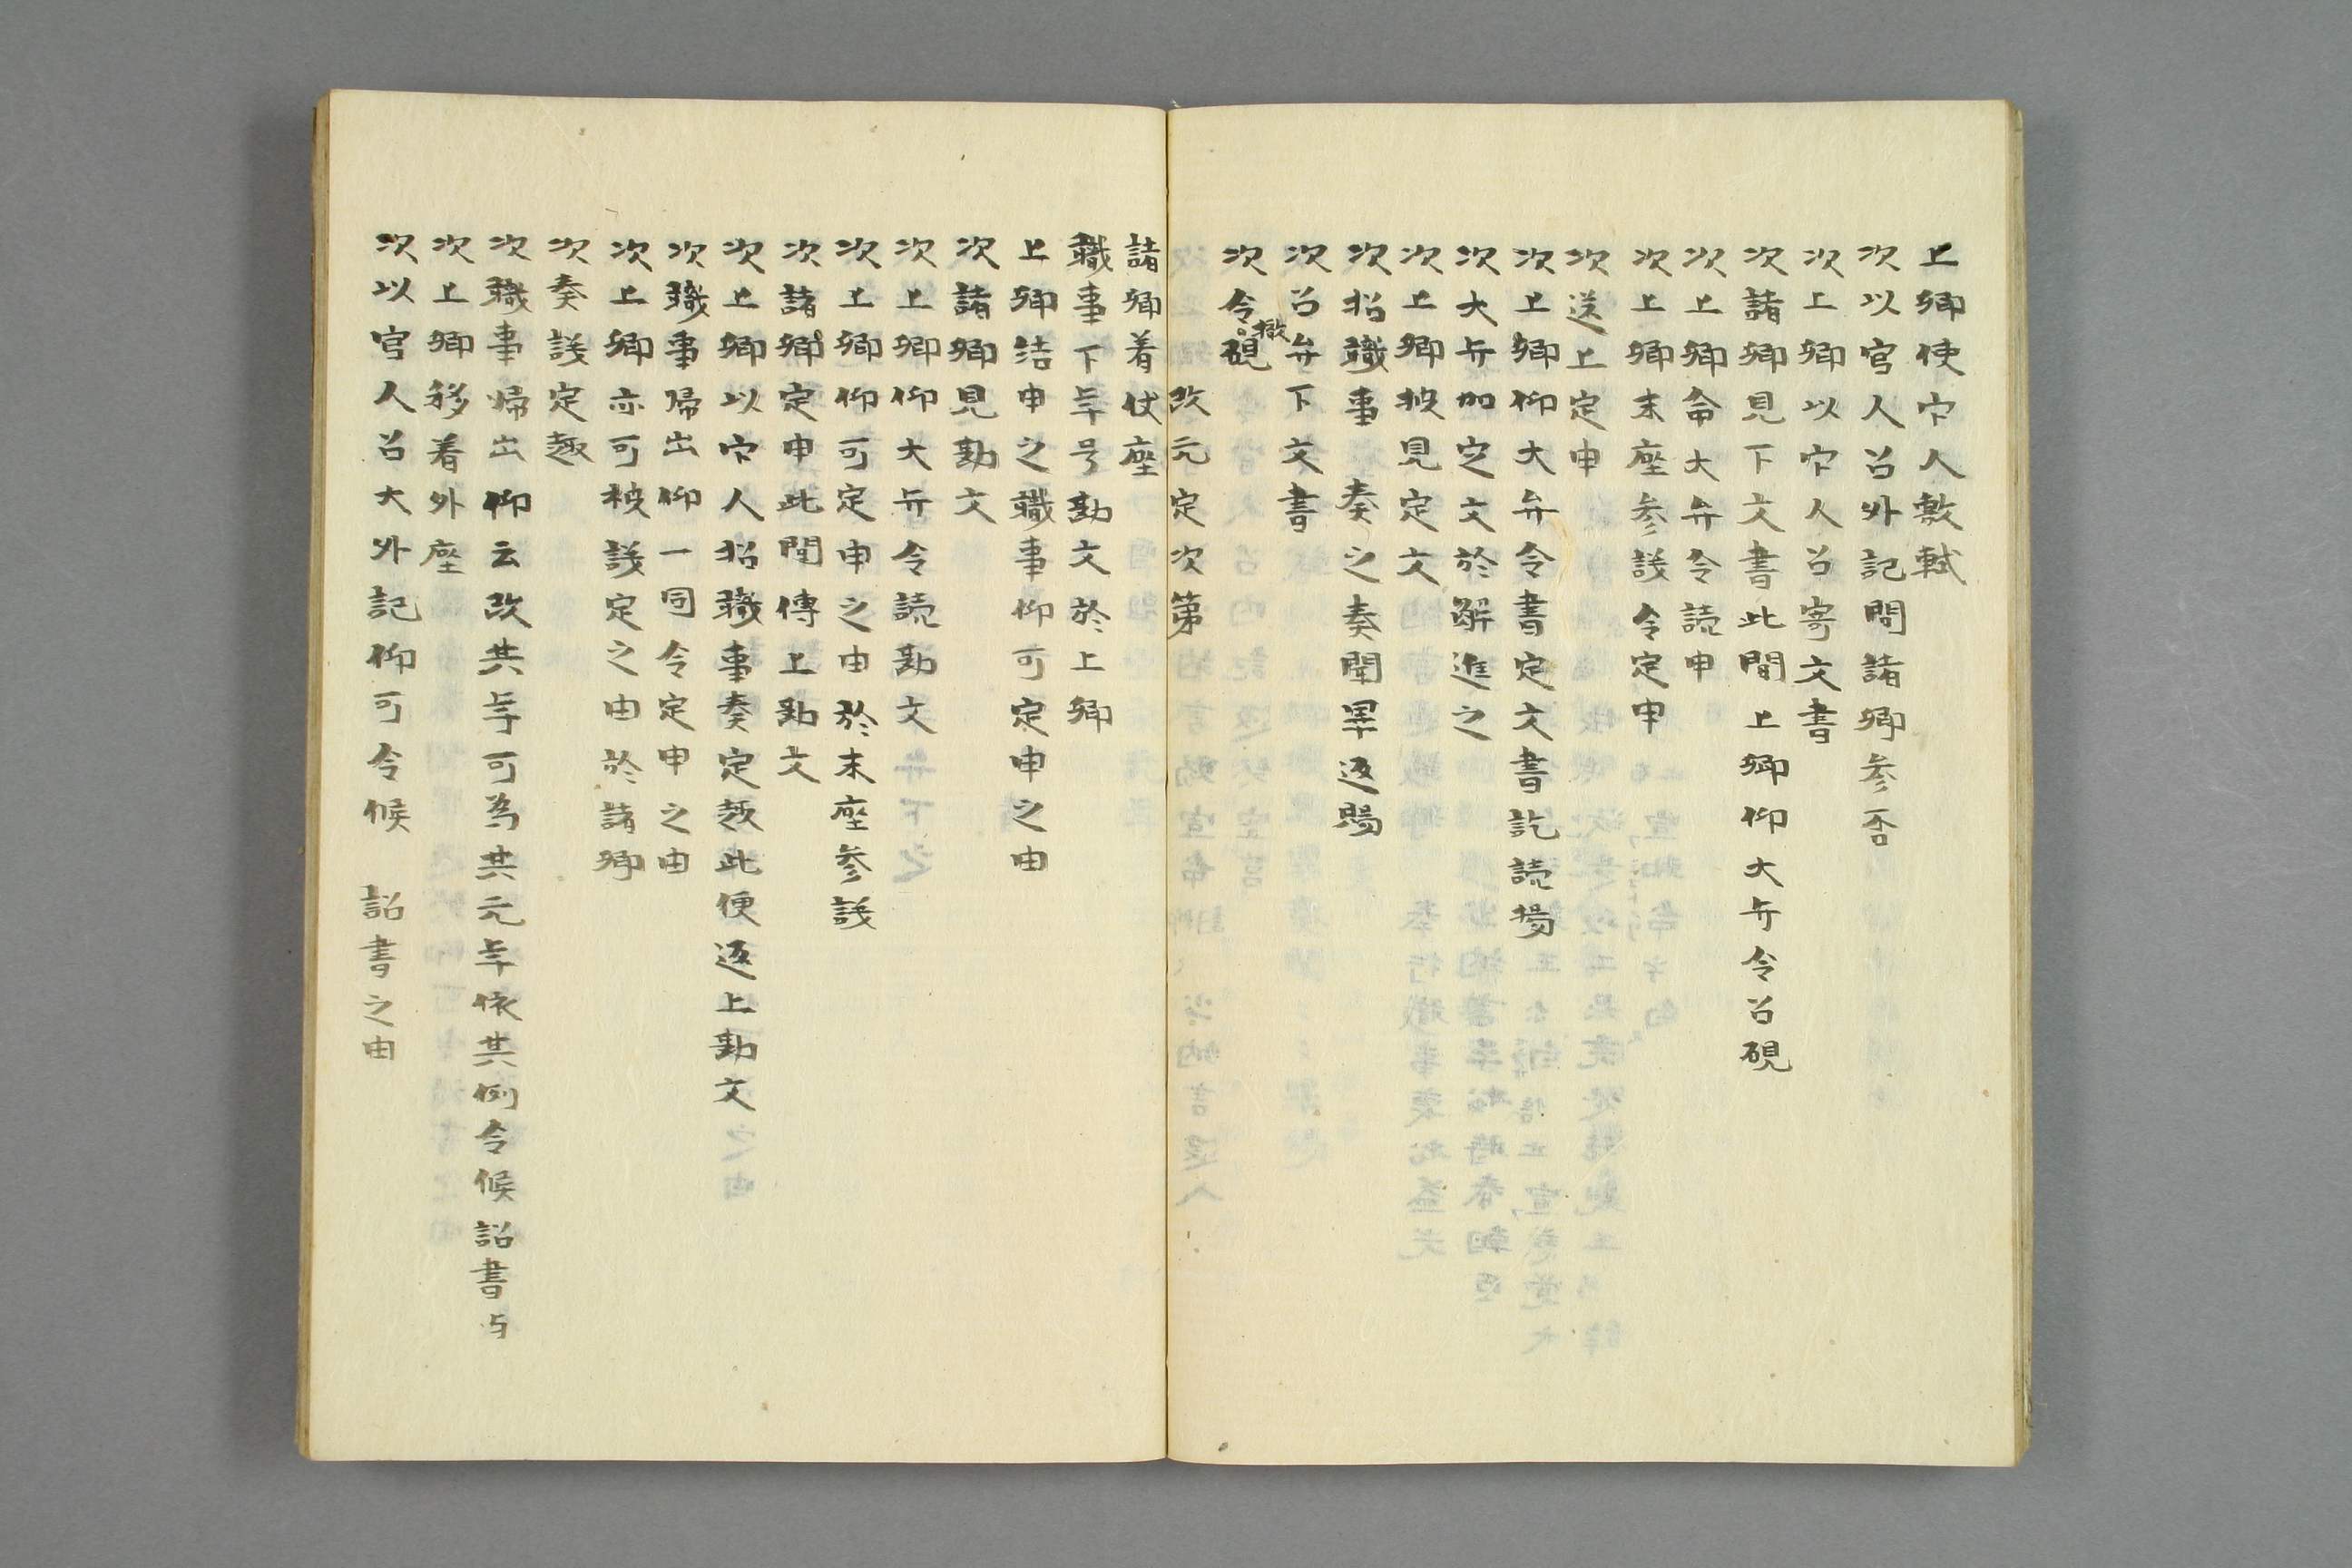 上卿使官人敷軾
次以官人召外記問諸卿参否
次上卿以官人召寄文書
次諸卿見下文書此間上卿仰大弁令召硯
次上卿命大弁令読申
次上卿末座参議令定申
次送上定申
次上卿仰大弁令書定文書訖読揚
次大弁加定文於解進之
次上卿披見定文
次招職事　奏之奏聞畢返賜
次召弁下文書
次令撤硯
改元定次第
諸卿着仗座
職事下年号勘文於上卿
上卿結申之職事仰可定申之由
次諸卿見勘文
次上卿仰大弁令読勘文
次上卿仰可定申之由於末座参議
次諸卿定申此間傳上勘文
次上卿以官人招職事奏定趣此便返上勘文
次職事帰出仰一同令定申之由
次上卿亦可被議定之由於諸卿
次奏議定趣
次職事帰出仰云改其年可為其元年依其例令候詔書与
次上卿移着外座
次以官人召大外記仰可令候　詔書之由